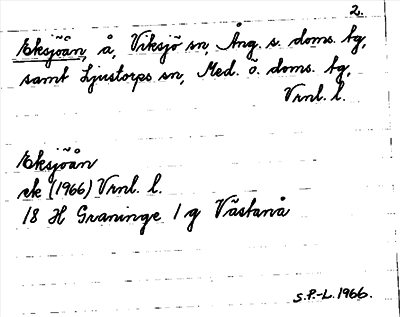 2.
Eksjöån, å, Viksjö sn, Ång. s. doms. tg,
samt Ljustorps sn, Med. ö. doms. tg,
Vrnl. l.
Eksjöån
ek (1966) Vrnl. l.
18 H Graninge 1 g Västanå
S.P.-L. 1966.